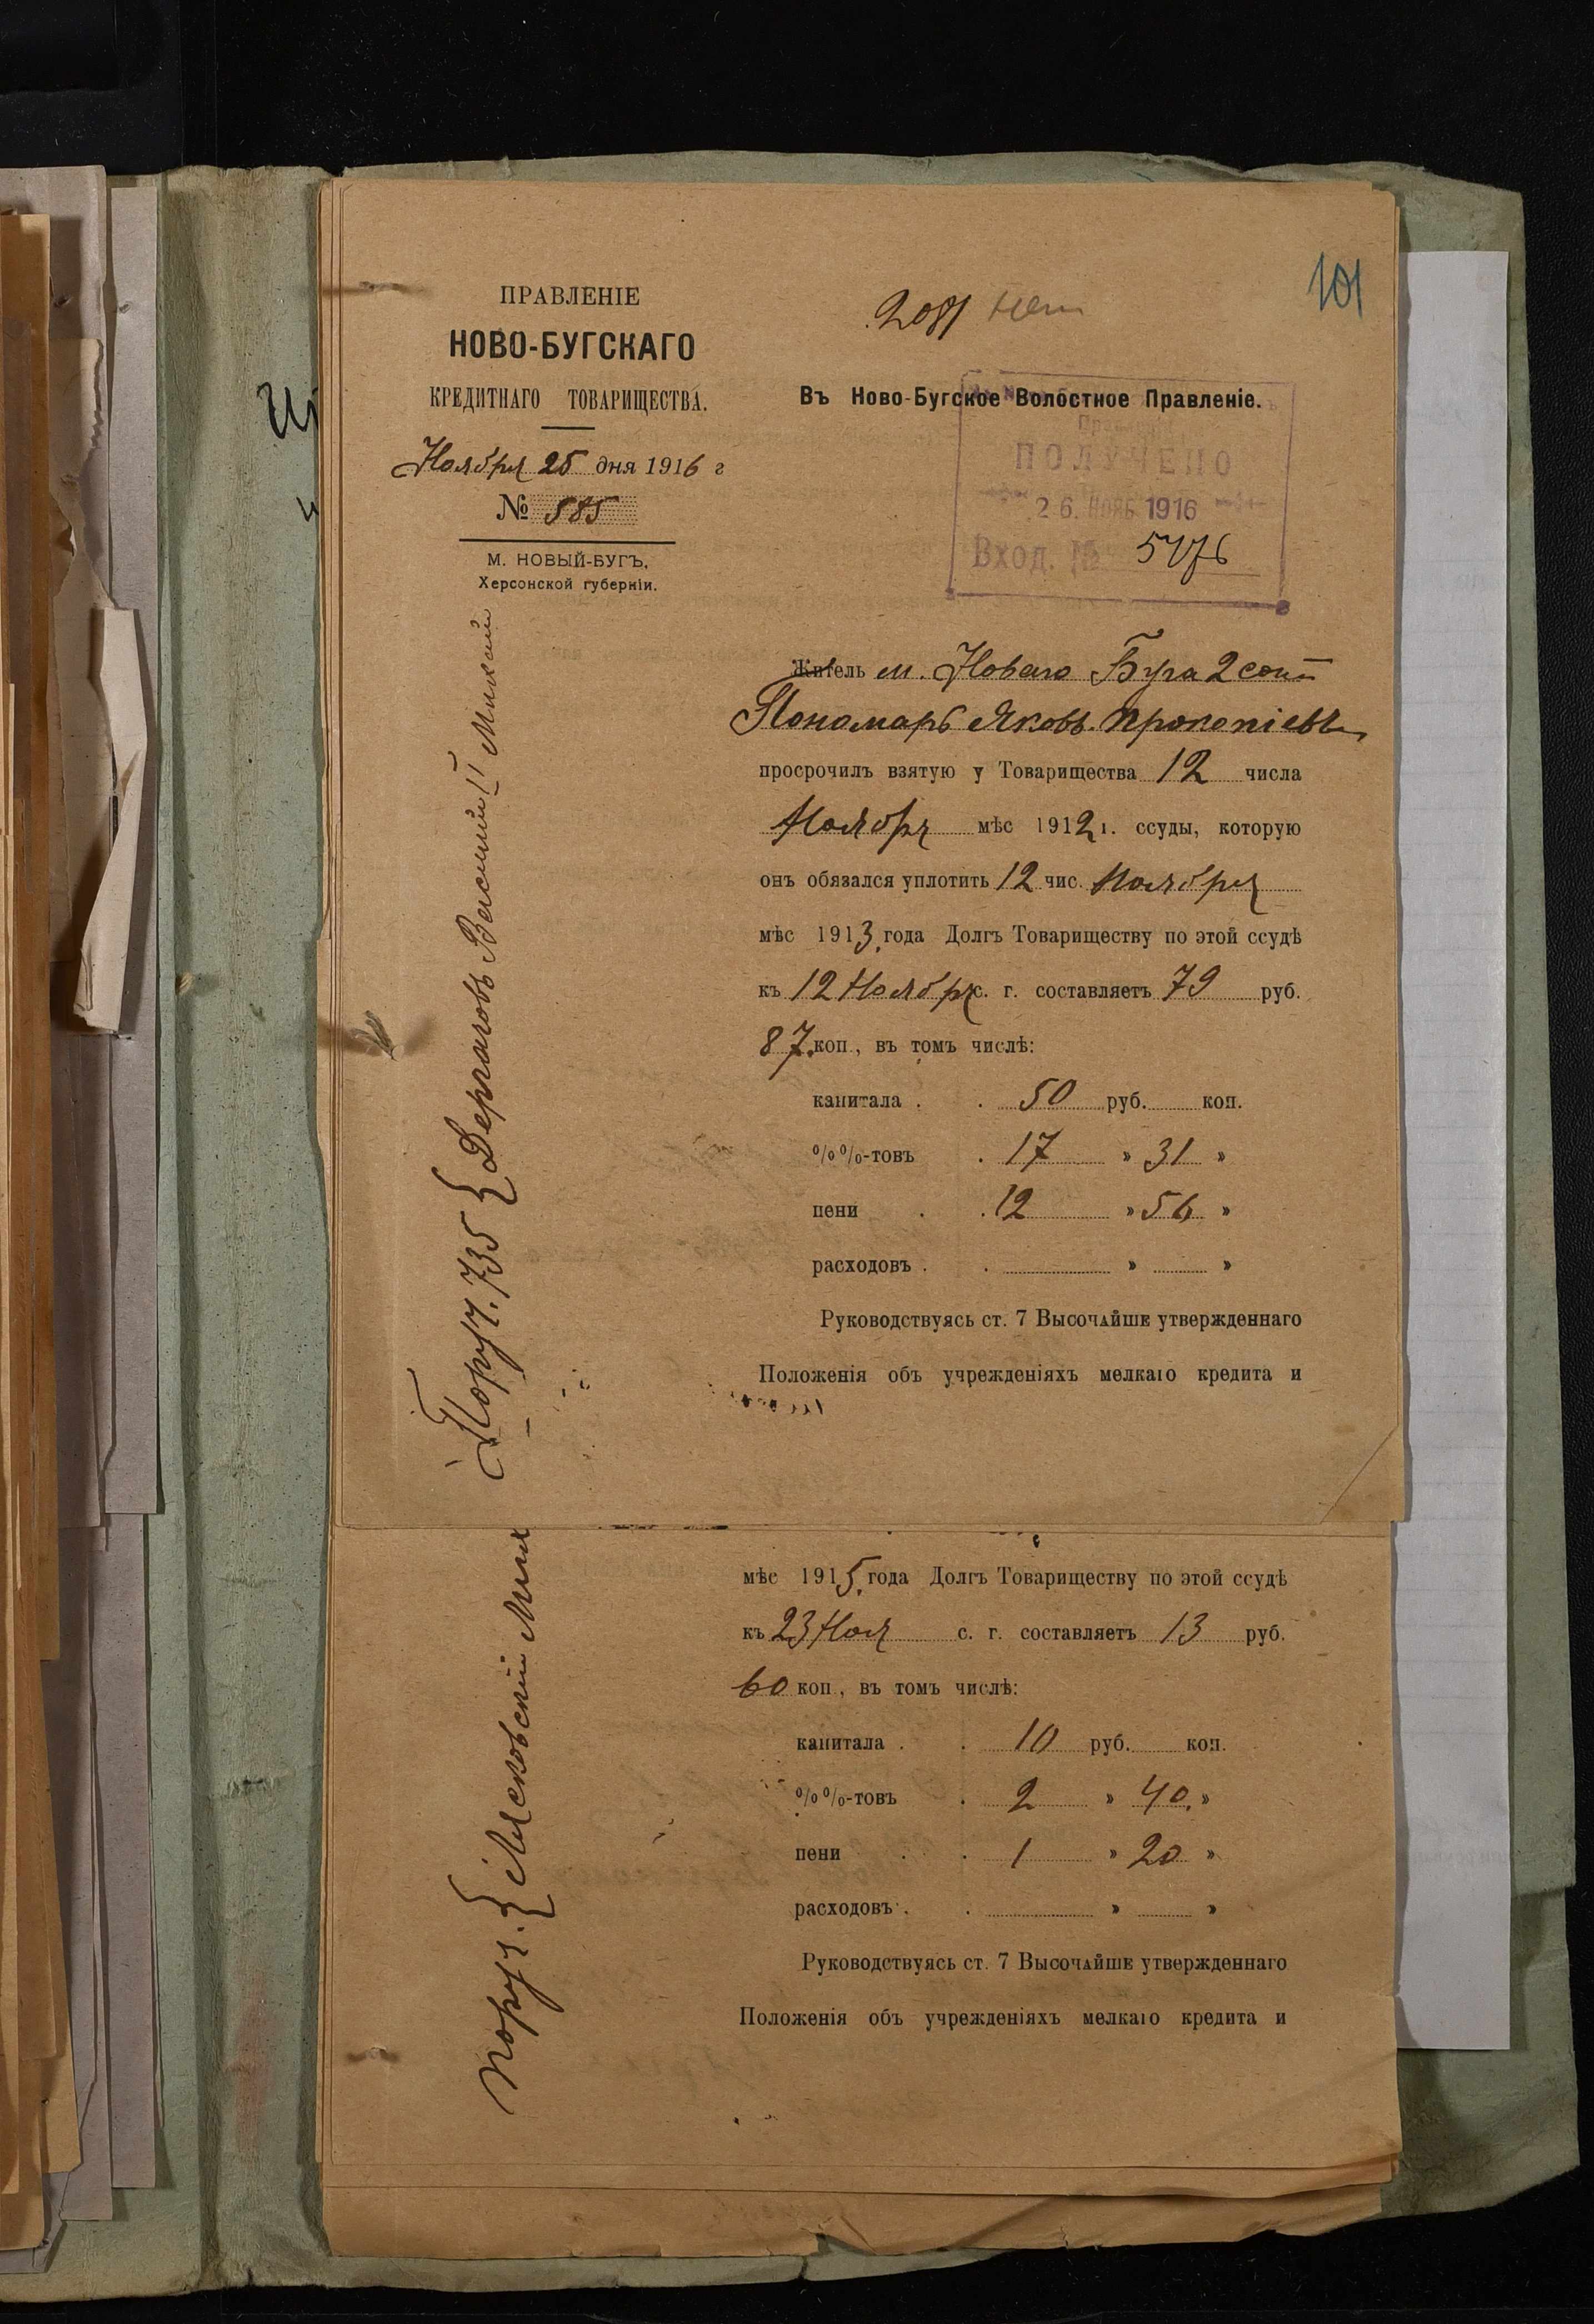 101
2081 нет
ПРАВЛЕНІЕ
НОВО-БУГСКАГО
КРЕДИТНАГО ТОВАРИЩЕСТВА.
Ноября 25 дня 1916 г
№ 585
М. НОВЫЙ-БУГЪ,
Херсонской губерніи.
Въ Ново-Бугское Волостное Правленіе.
ПОЛУЧЕНО
26. НОЯБ 1916
Вход. № 5176
Житель м. Новаго Буга 2 сот
Пономарь Яковъ Прокопіевъ
просрочилъ взятую у Товарищества 12 числа
Ноября мѣс 1912 г. ссуды, которую
онъ обязался уплотить 12 чис. Ноября
мѣс 1913 года Долгъ Товариществу по этой ссудѣ
къ 12 Ноября с. г. составляетъ 79 руб.
87 коп., въ томъ числѣ:
капитала . . 50 руб. коп.
%%-товъ . 17 » 31 »
пени . . 12 » 56 »
расходовъ . . » »
Руководствуясь ст. 7 Высочайше утвержденнаго
Положенія объ учрежденіяхъ мелкаго кредита и
Поруч. 735 { Дергачовъ Василий II Михай
мѣс 1915 года Долгъ Товариществу по этой ссудѣ
къ 23 Ноя с. г. составляетъ 13 руб.
60 коп., въ томъ числѣ:
капитала . . 10 руб. коп.
%%-товъ . 2 » 40 »
пени . . 1 » 20 »
расходовъ . . » »
Руководствуясь ст. 7 Высочайше утвержденнаго
Положенія объ учрежденіяхъ мелкаго кредита и
Поруч. { Мих